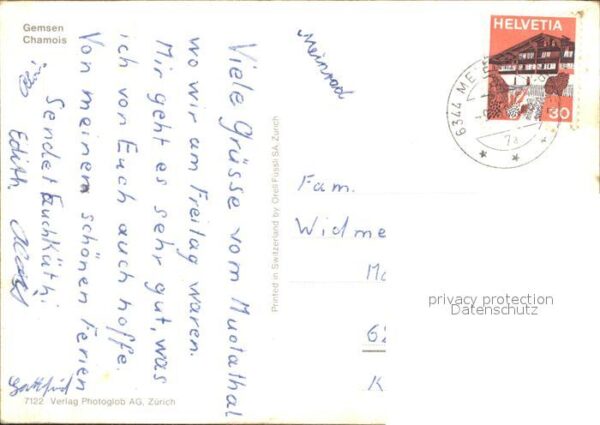 Gemsen
Chamois
Viele Grüsse vom Muotathal
wo wir am Freitag waren.
Mir geht es sehr gut, was
ich von Euch auch hoffe.
Von meinem schönen Ferien
Sendet Euch Käthi
Edith
Gottfried
Meinrad
7122 Verlag Photoglob AG, Zürich
Printed in Switzerland by Orell Füssli SA Zürich
HELVETIA
30
6344 ME
Fam.
Widme
62
K
privacy protection
Datenschutz